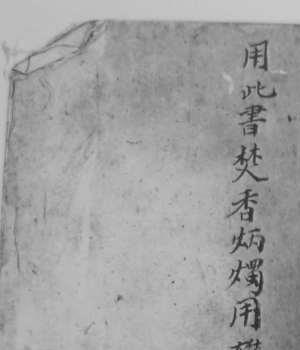 用此書焚香炳燭用